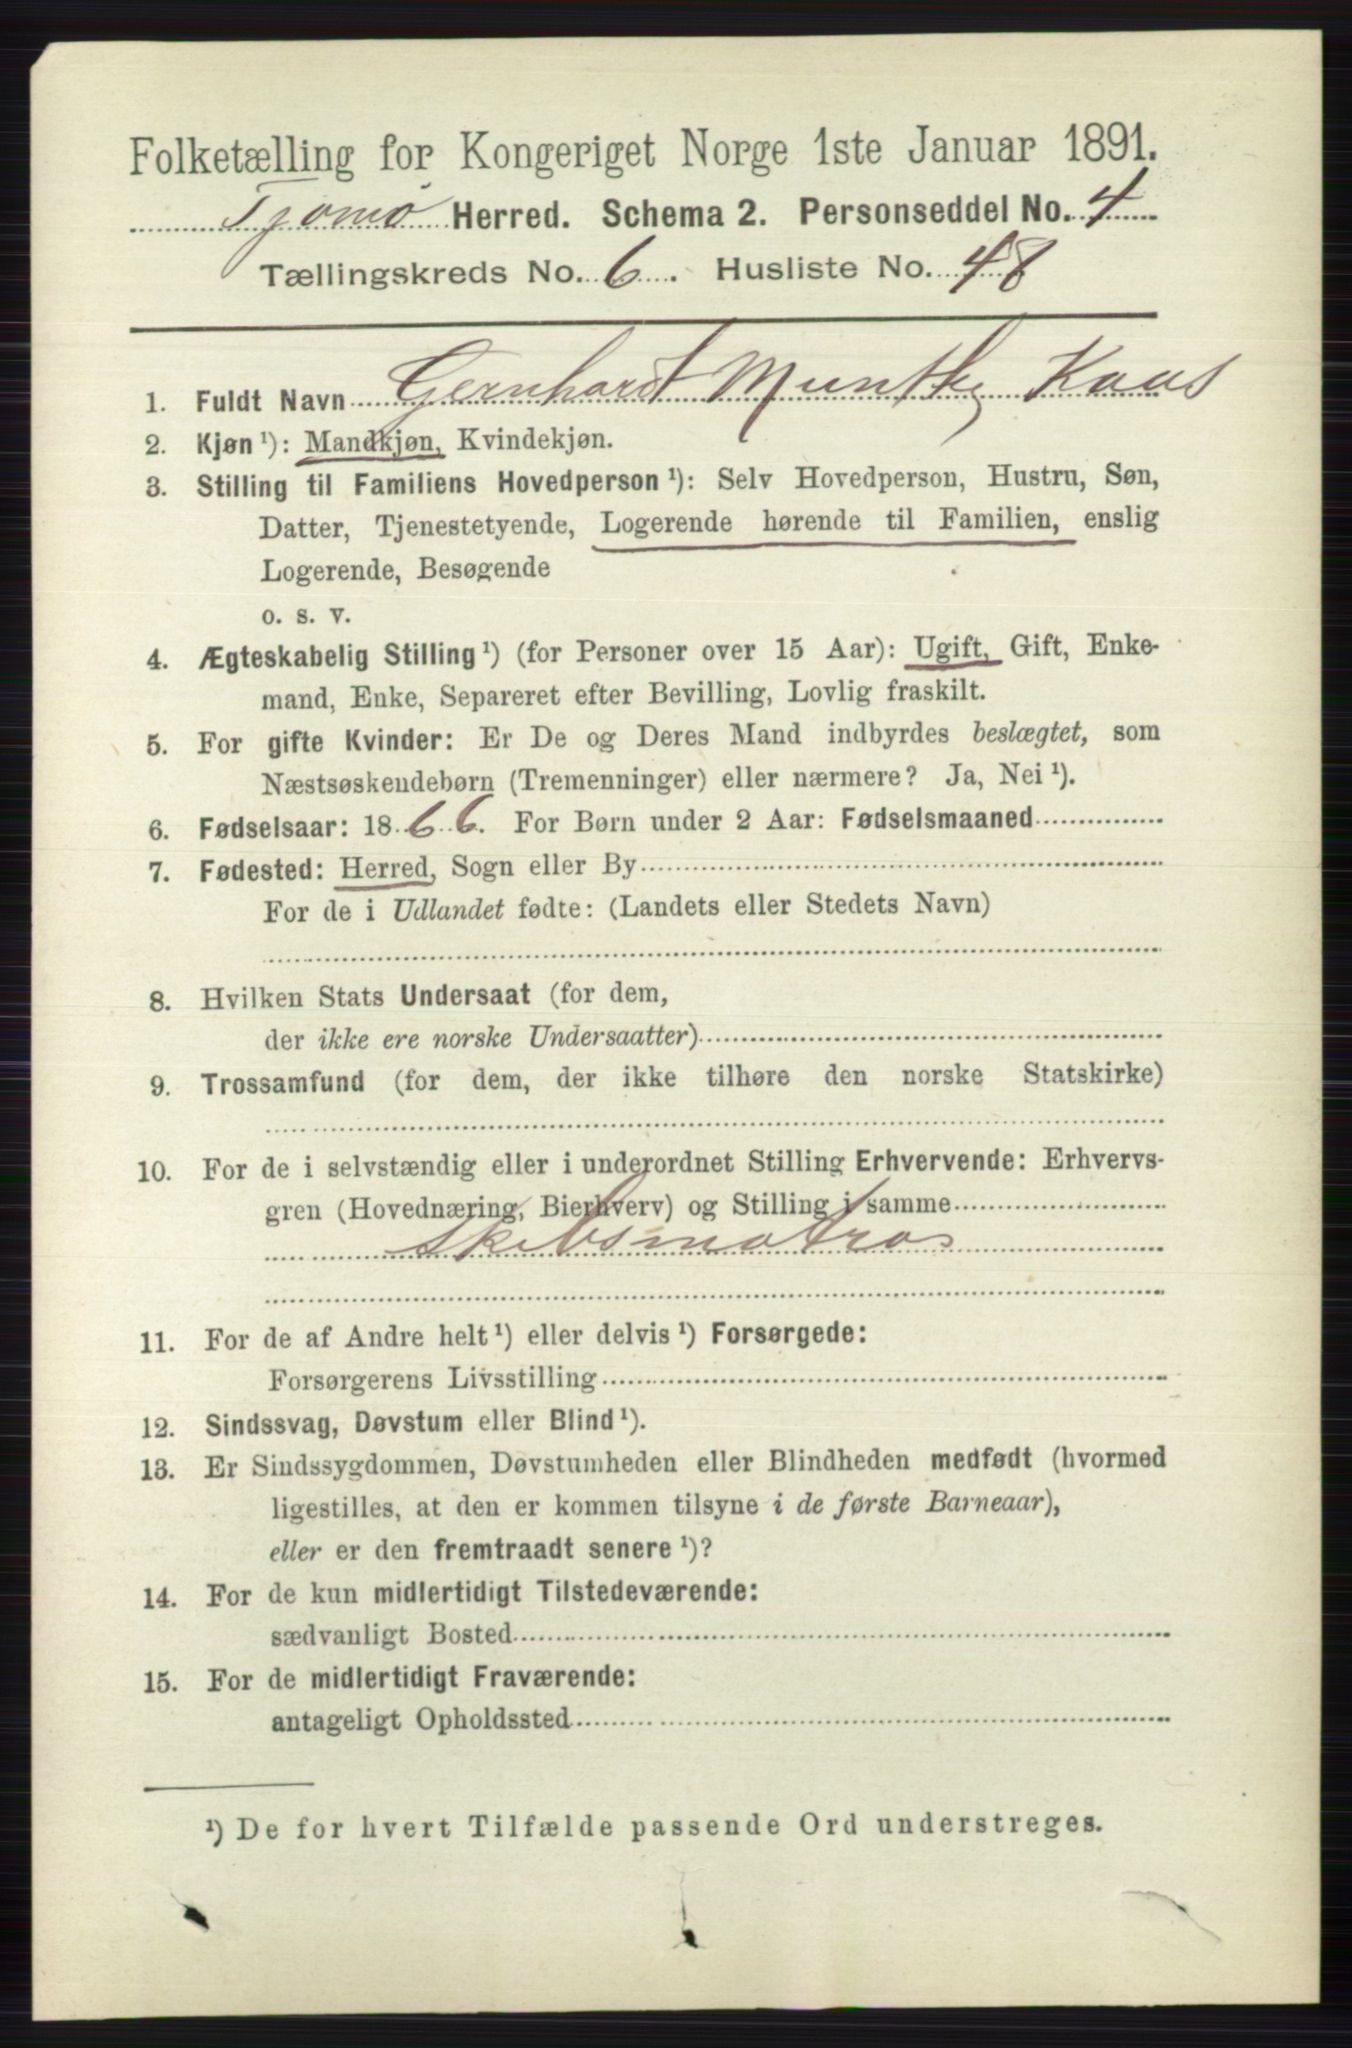 Folketælling for Kongeriget Norge 1ste Januar 1891.
Tjømø Herred. Schema 2. Personseddel No. 4
Tællingskreds No. 6. Husliste No. 48
1. Fuldt Navn Gernhard Munthe Kaas
2. Kjøn ¹): Mandkjøn, Kvindekjøn.
3. Stilling til Familiens Hovedperson ¹): Selv Hovedperson, Hustru, Søn,
Datter, Tjenestetyende, Logerende hørende til Familien, enslig
Logerende, Besøgende
o. s. v.
4. Ægteskabelig Stilling ¹) (for Personer over 15 Aar): Ugift, Gift, Enke-
mand, Enke, Separeret efter Bevilling, Lovlig fraskilt.
5. For gifte Kvinder: Er De og Deres Mand indbyrdes beslægtet, som
Næstsøskendebørn (Tremenninger) eller nærmere? Ja, Nei ¹).
6. Fødselsaar: 1866. For Børn under 2 Aar: Fødselsmaaned
7. Fødested: Herred, Sogn eller By
For de i Udlandet fødte: (Landets eller Stedets Navn)
8. Hvilken Stats Undersaat (for dem,
der ikke ere norske Undersaatter)
9. Trossamfund (for dem, der ikke tilhøre den norske Statskirke)
10. For de i selvstændig eller i underordnet Stilling Erhvervende: Erhvervs-
gren (Hovednæring, Bierhverv) og Stilling i samme
Skibsmatros
11. For de af Andre helt ¹) eller delvis ¹) Forsørgede:
Forsørgerens Livsstilling
12. Sindssvag, Døvstum eller Blind ¹).
13. Er Sindssygdommen, Døvstumheden eller Blindheden medfødt (hvormed
ligestilles, at den er kommen tilsyne i de første Barneaar),
eller er den fremtraadt senere ¹)?
14. For de kun midlertidigt Tilstedeværende:
sædvanligt Bosted
15. For de midlertidigt Fraværende:
antageligt Opholdssted
¹) De for hvert Tilfælde passende Ord understreges.